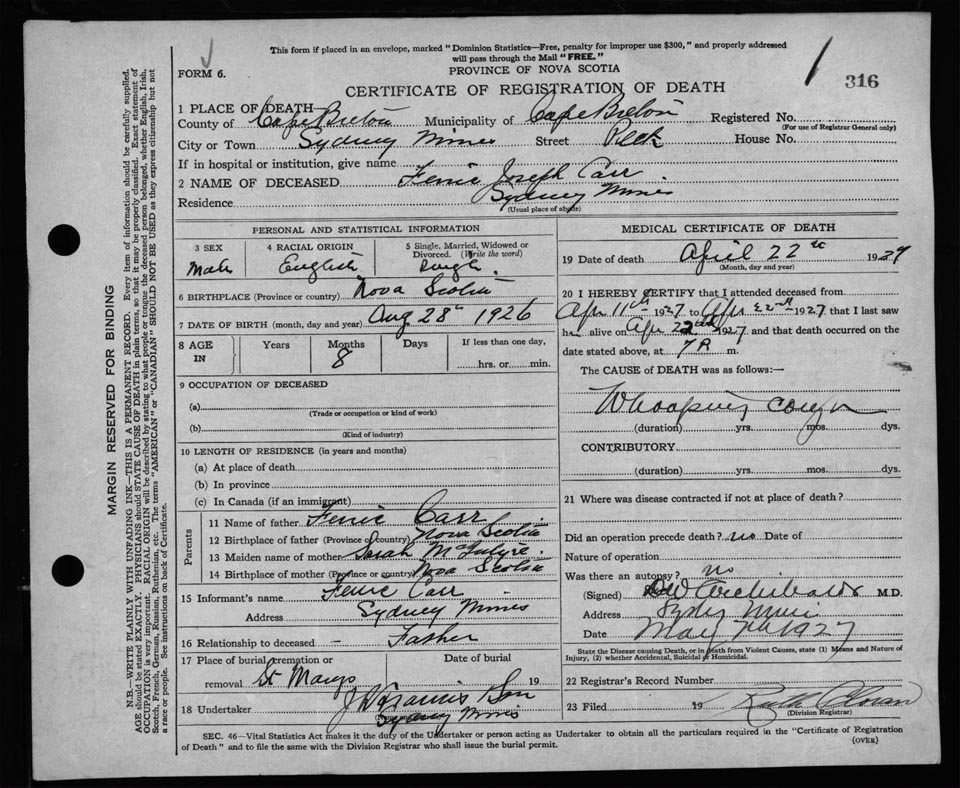 This form if placed in an envelope, marked "Dominion Statistics—Free, penalty for improper use $300," and properly addressed
will pass through the Mail "FREE."
FORM 6.
PROVINCE OF NOVA SCOTIA
316
CERTIFICATE OF REGISTRATION OF DEATH
1 PLACE OF DEATH—
County of Cape Breton Municipality of Cape Breton Registered No.
(For use of Registrar General only)
City or Town Sydney Mines Street House No.
If in hospital or institution, give name
2 NAME OF DECEASED Joseph Carr
Residence Sydney Mines
(Usual place of abode)
PERSONAL AND STATISTICAL INFORMATION
3 SEX
Male
4 RACIAL ORIGIN
English
5 Single, Married, Widowed or
Divorced. (Write the word)
Single
6 BIRTHPLACE (Province or country) Nova Scotia
7 DATE OF BIRTH (month, day and year) Aug 28th 1926
8 AGE
IN
Years
Months
8
Days
If less than one day,
hrs. or min.
9 OCCUPATION OF DECEASED
(a)
(Trade or occupation or kind of work)
(b)
(Kind of industry)
10 LENGTH OF RESIDENCE (in years and months)
(a) At place of death
(b) In province
(c) In Canada (if an immigrant)
Parents
11 Name of father Carr
12 Birthplace of father (Province or country) Nova Scotia
13 Maiden name of mother Sarah McIntyre
14 Birthplace of mother (Province or country) Nova Scotia
15 Informant's name Carr
Address Sydney Mines
16 Relationship to deceased — Father
17 Place of burial, cremation or
removal St Marys
Date of burial
19
18 Undertaker Son
Sydney Mines
MEDICAL CERTIFICATE OF DEATH
19 Date of death April 22 1927
(Month, day and year)
20 I HEREBY CERTIFY that I attended deceased from
Apr 11th 1927 to Apr 22nd 1927, that I last saw
h alive on Apr 22nd 1927, and that death occurred on
date stated above, at 7 P. m.
The CAUSE of DEATH was as follows:—
Whooping cough
(duration) yrs. mos. dys.
CONTRIBUTORY
(duration) yrs. mos. dys.
21 Where was disease contracted if not at place of death?
Did an operation precede death? no Date of
Nature of operation
Was there an autopsy? no
(Signed) Archibald M.D.
Address Sydney Mines
Date May 7th 1927
State the Disease causing Death, or in death from Violent Causes, state (1) Means and Nature of
Injury, (2) whether Accidental, Suicidal or Homicidal.
22 Registrar's Record Number
23 Filed 19
(Division Registrar)
SEC. 46—Vital Statistics Act makes it the duty of the Undertaker or person acting as Undertaker to obtain all the particulars required in the "Certificate of Registration
of Death" and to file the same with the Division Registrar who shall issue the burial permit.
(OVER)
MARGIN RESERVED FOR BINDING
N.B.—WRITE PLAINLY WITH UNFADING INK—THIS IS A PERMANENT RECORD. Every item of information should be carefully supplied.
AGE should be stated EXACTLY. PHYSICIANS should STATE CAUSE OF DEATH in plain terms, so that it may be properly classified. Exact statement of
OCCUPATION is very important. RACIAL ORIGIN will be described by stating to what people or tongue the deceased person belonged, whether English, Irish,
Scotch, French, German, Russian, Ruthenian, etc. The terms "AMERICAN" or "CANADIAN" SHOULD NOT BE USED as they express citizenship but not
a race or people. See instructions on back of Certificate.